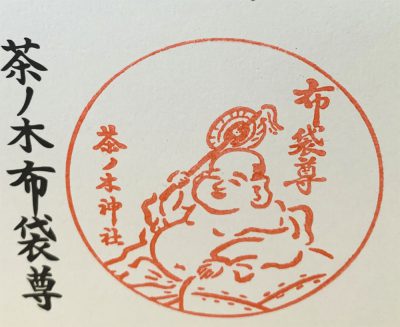 布袋尊
茶ノ木神社
茶ノ木布袋尊